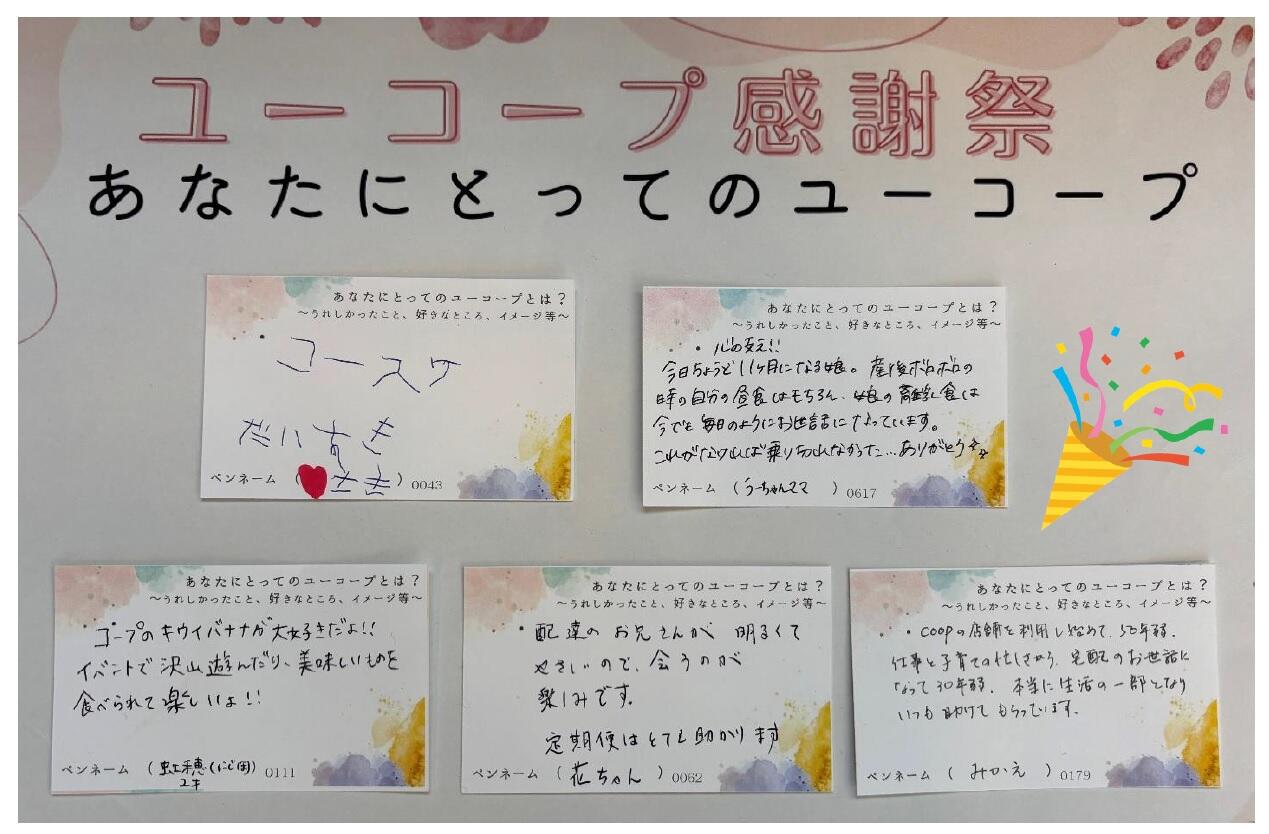 ユーコープ感謝祭
あなたにとってのユーコープ
あなたにとってのユーコープとは？
～うれしかったこと、好きなところ、イメージ等～
・コースケ
だいすき
ペンネーム （ ♥さき ） 0043
あなたにとってのユーコープとは？
～うれしかったこと、好きなところ、イメージ等～
・心の支え!!
今日ちょうど11ヶ月になる娘。産後ボロボロの
時の自分の昼食はもちろん、娘の離乳食は
今でも毎日のようにお世話になっています。
これがなければ乗り切れなかった…ありがとう
ペンネーム （ うーちゃんママ ） 0617
あなたにとってのユーコープとは？
～うれしかったこと、好きなところ、イメージ等～
・コープのキウイバナナが大好きだよ!!
イベントで沢山遊んだり、美味しいものを
食べられて楽しいよ!!
ペンネーム （ ） 0111
あなたにとってのユーコープとは？
～うれしかったこと、好きなところ、イメージ等～
・配達のお兄さんが明るくて
やさしいので、会うのが
楽しみです。
定期便はとても助かります
ペンネーム （ 花ちゃん ） 0062
あなたにとってのユーコープとは？
～うれしかったこと、好きなところ、イメージ等～
・COOPの店舗を利用し始めて、50年弱。
仕事と子育ての忙しさから、宅配のお世話に
なって30年弱。本当に生活の一部となり
いつも助けてもらっています。
ペンネーム （ みかえ ） 0179